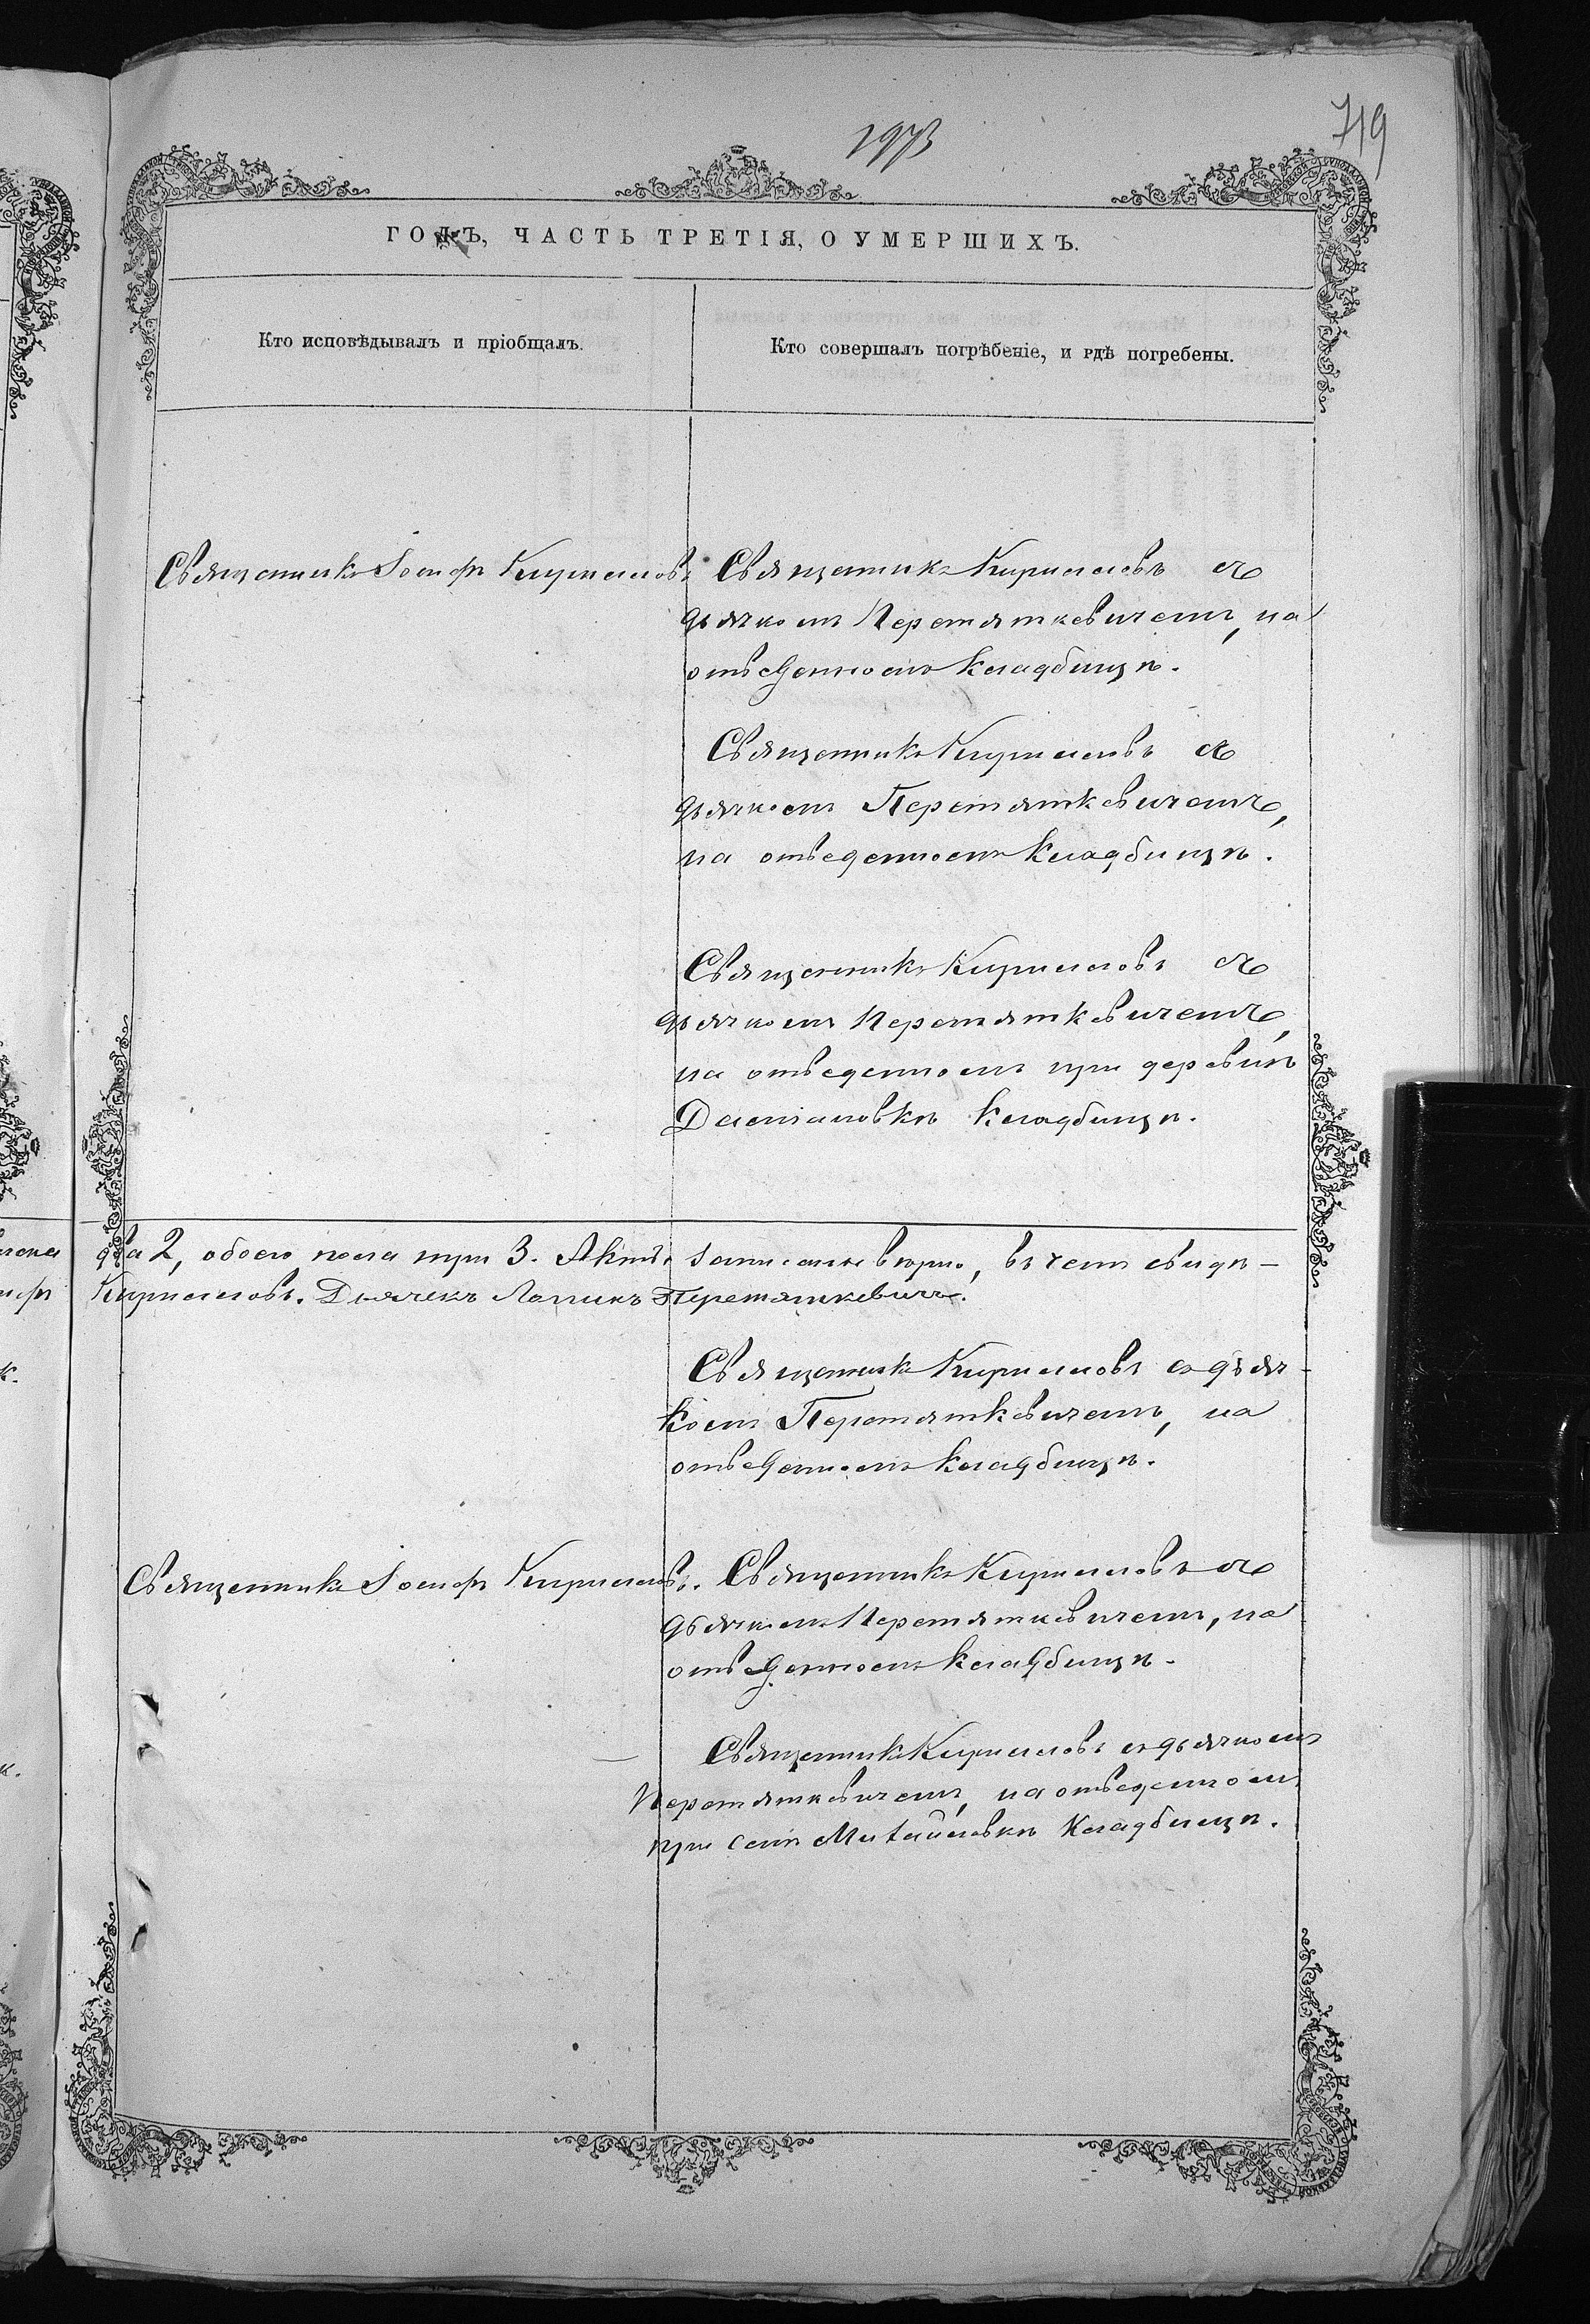 1973
719
ГОДЪ, ЧАСТЬ ТРЕТІЯ, О УМЕРШИХЪ.
Кто исповѣдывалъ и пріобщалъ.
Кто совершалъ погрѣбеніе, и гдѣ погребены.
Священникъ Іосифъ Кирилловъ
Священникъ Кирилловъ съ
дьячкомъ Перетяткевичемъ, на
отведенномъ кладбищѣ.
Священникъ Кирилловъ съ
дьячкомъ Перетяткевичемъ,
на отведенномъ кладбищѣ.
Священникъ Кирилловъ съ
дьячкомъ Перетяткевичемъ,
на отведенномъ при деревнѣ
кладбищѣ.
два 2, обоего пола три 3. Актъ записанъ вѣрно, въ чемъ свидѣ-
Кирилловъ. Дьячекъ Перетяткевичъ.
Священникъ Кирилловъ съ дьяч-
комъ Перетяткевичемъ, на
отведенномъ кладбищѣ.
Священникъ Іосифъ Кирилловъ.
Священникъ Кирилловъ съ
дьячкомъ Перетяткевичемъ, на
отведенномъ кладбищѣ.
Священникъ Кирилловъ съ дьячкомъ
Перетяткевичемъ, на отведенномъ
при селѣ Михайловкѣ кладбищѣ.